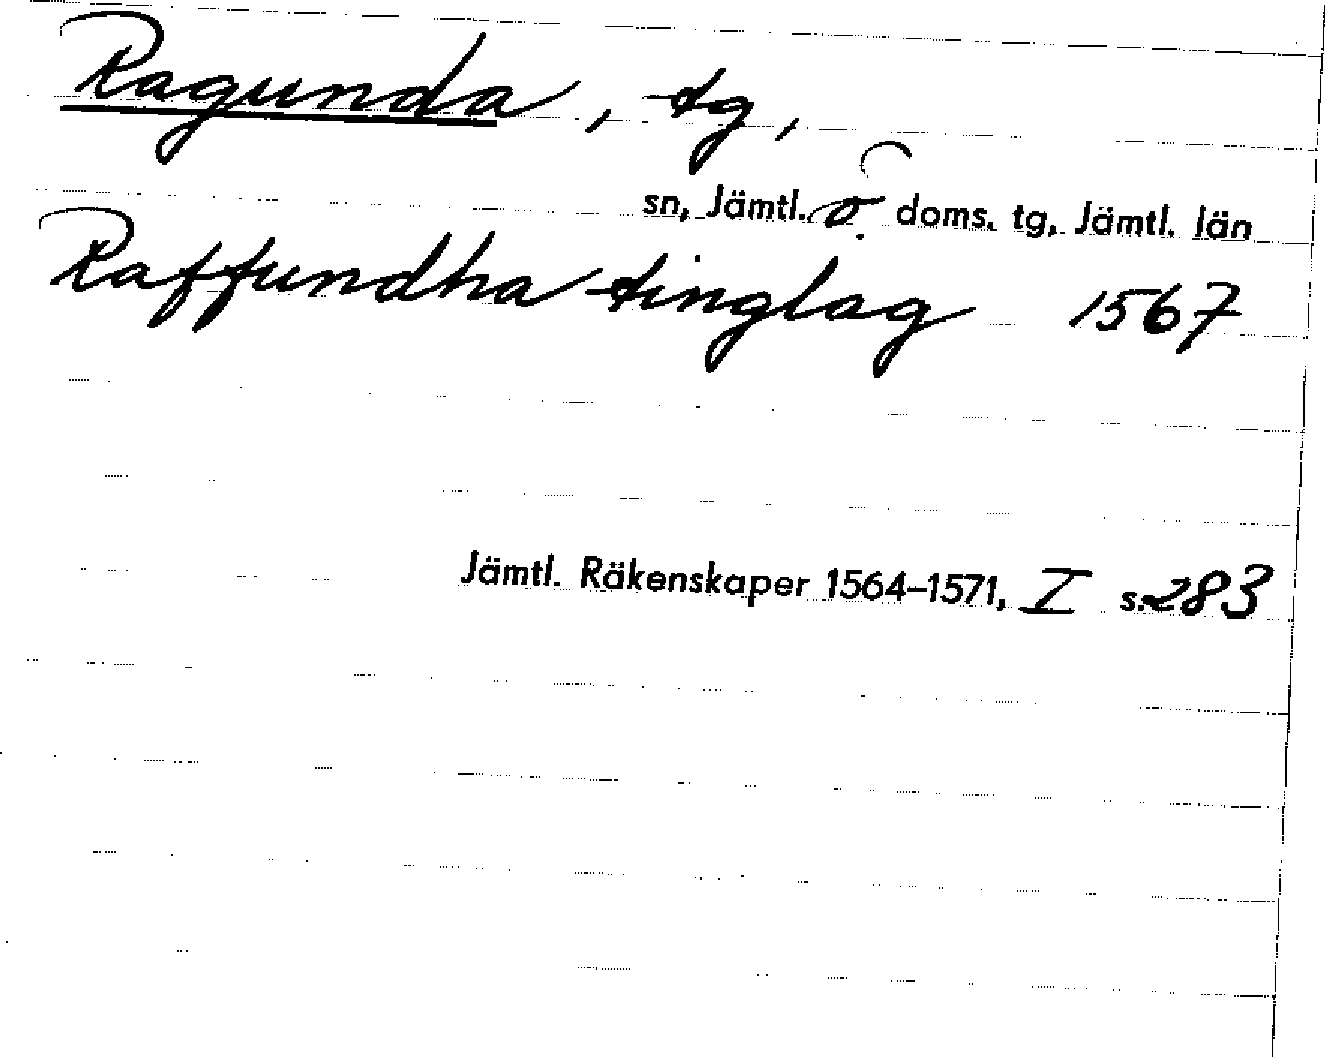 Ragunda, tg,
sn, Jämtl. ö. doms. tg, Jämtl. län
Raffundha tinglag 1567
Jämtl. Räkenskaper 1564–1571, I s. 283